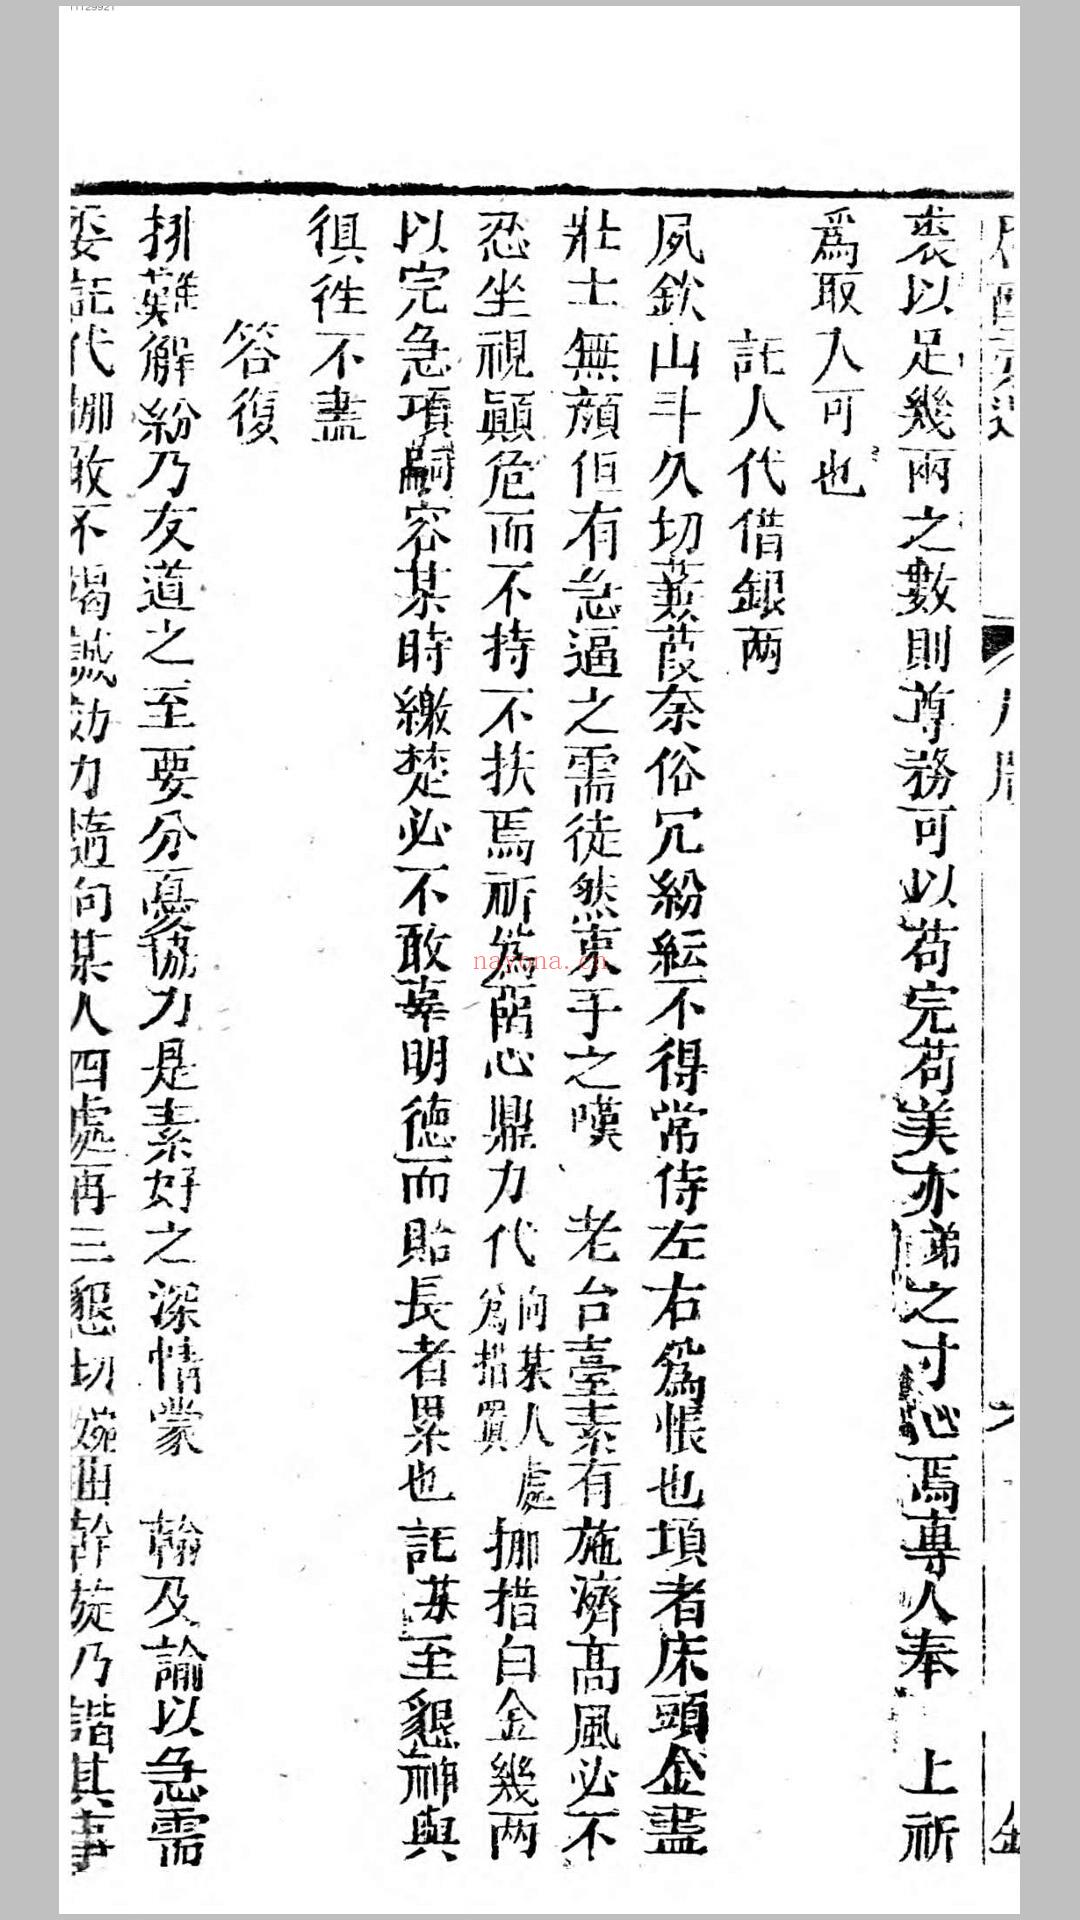 裘以足幾兩之數則尊務可以苟完苟美亦弟之寸心焉專人奉 上祈
爲取入可也
託人代借銀两
夙欽山斗久切蒹葭奈俗冗紛紜不得常侍左右爲悵也項者床頭金盡
壯士無顔但有急逼之需徒然束手之嘆 老台臺素有施濟高風必不
忍坐視顚危而不持不扶焉祈爲留心鼎力代向某人處爲措置挪措白金幾两
以完急項嗣容某時繳楚必不敢辜明德而貽長者累也託某至懇神與
俱徃不盡
答復
排難解紛乃友道之至要分憂協力是素好之深情蒙 翰及諭以急需
委託代挪敢不竭誠効力隨向某人四處再三懇切婉曲幹旋乃諧其事
nayona.cn
11129921